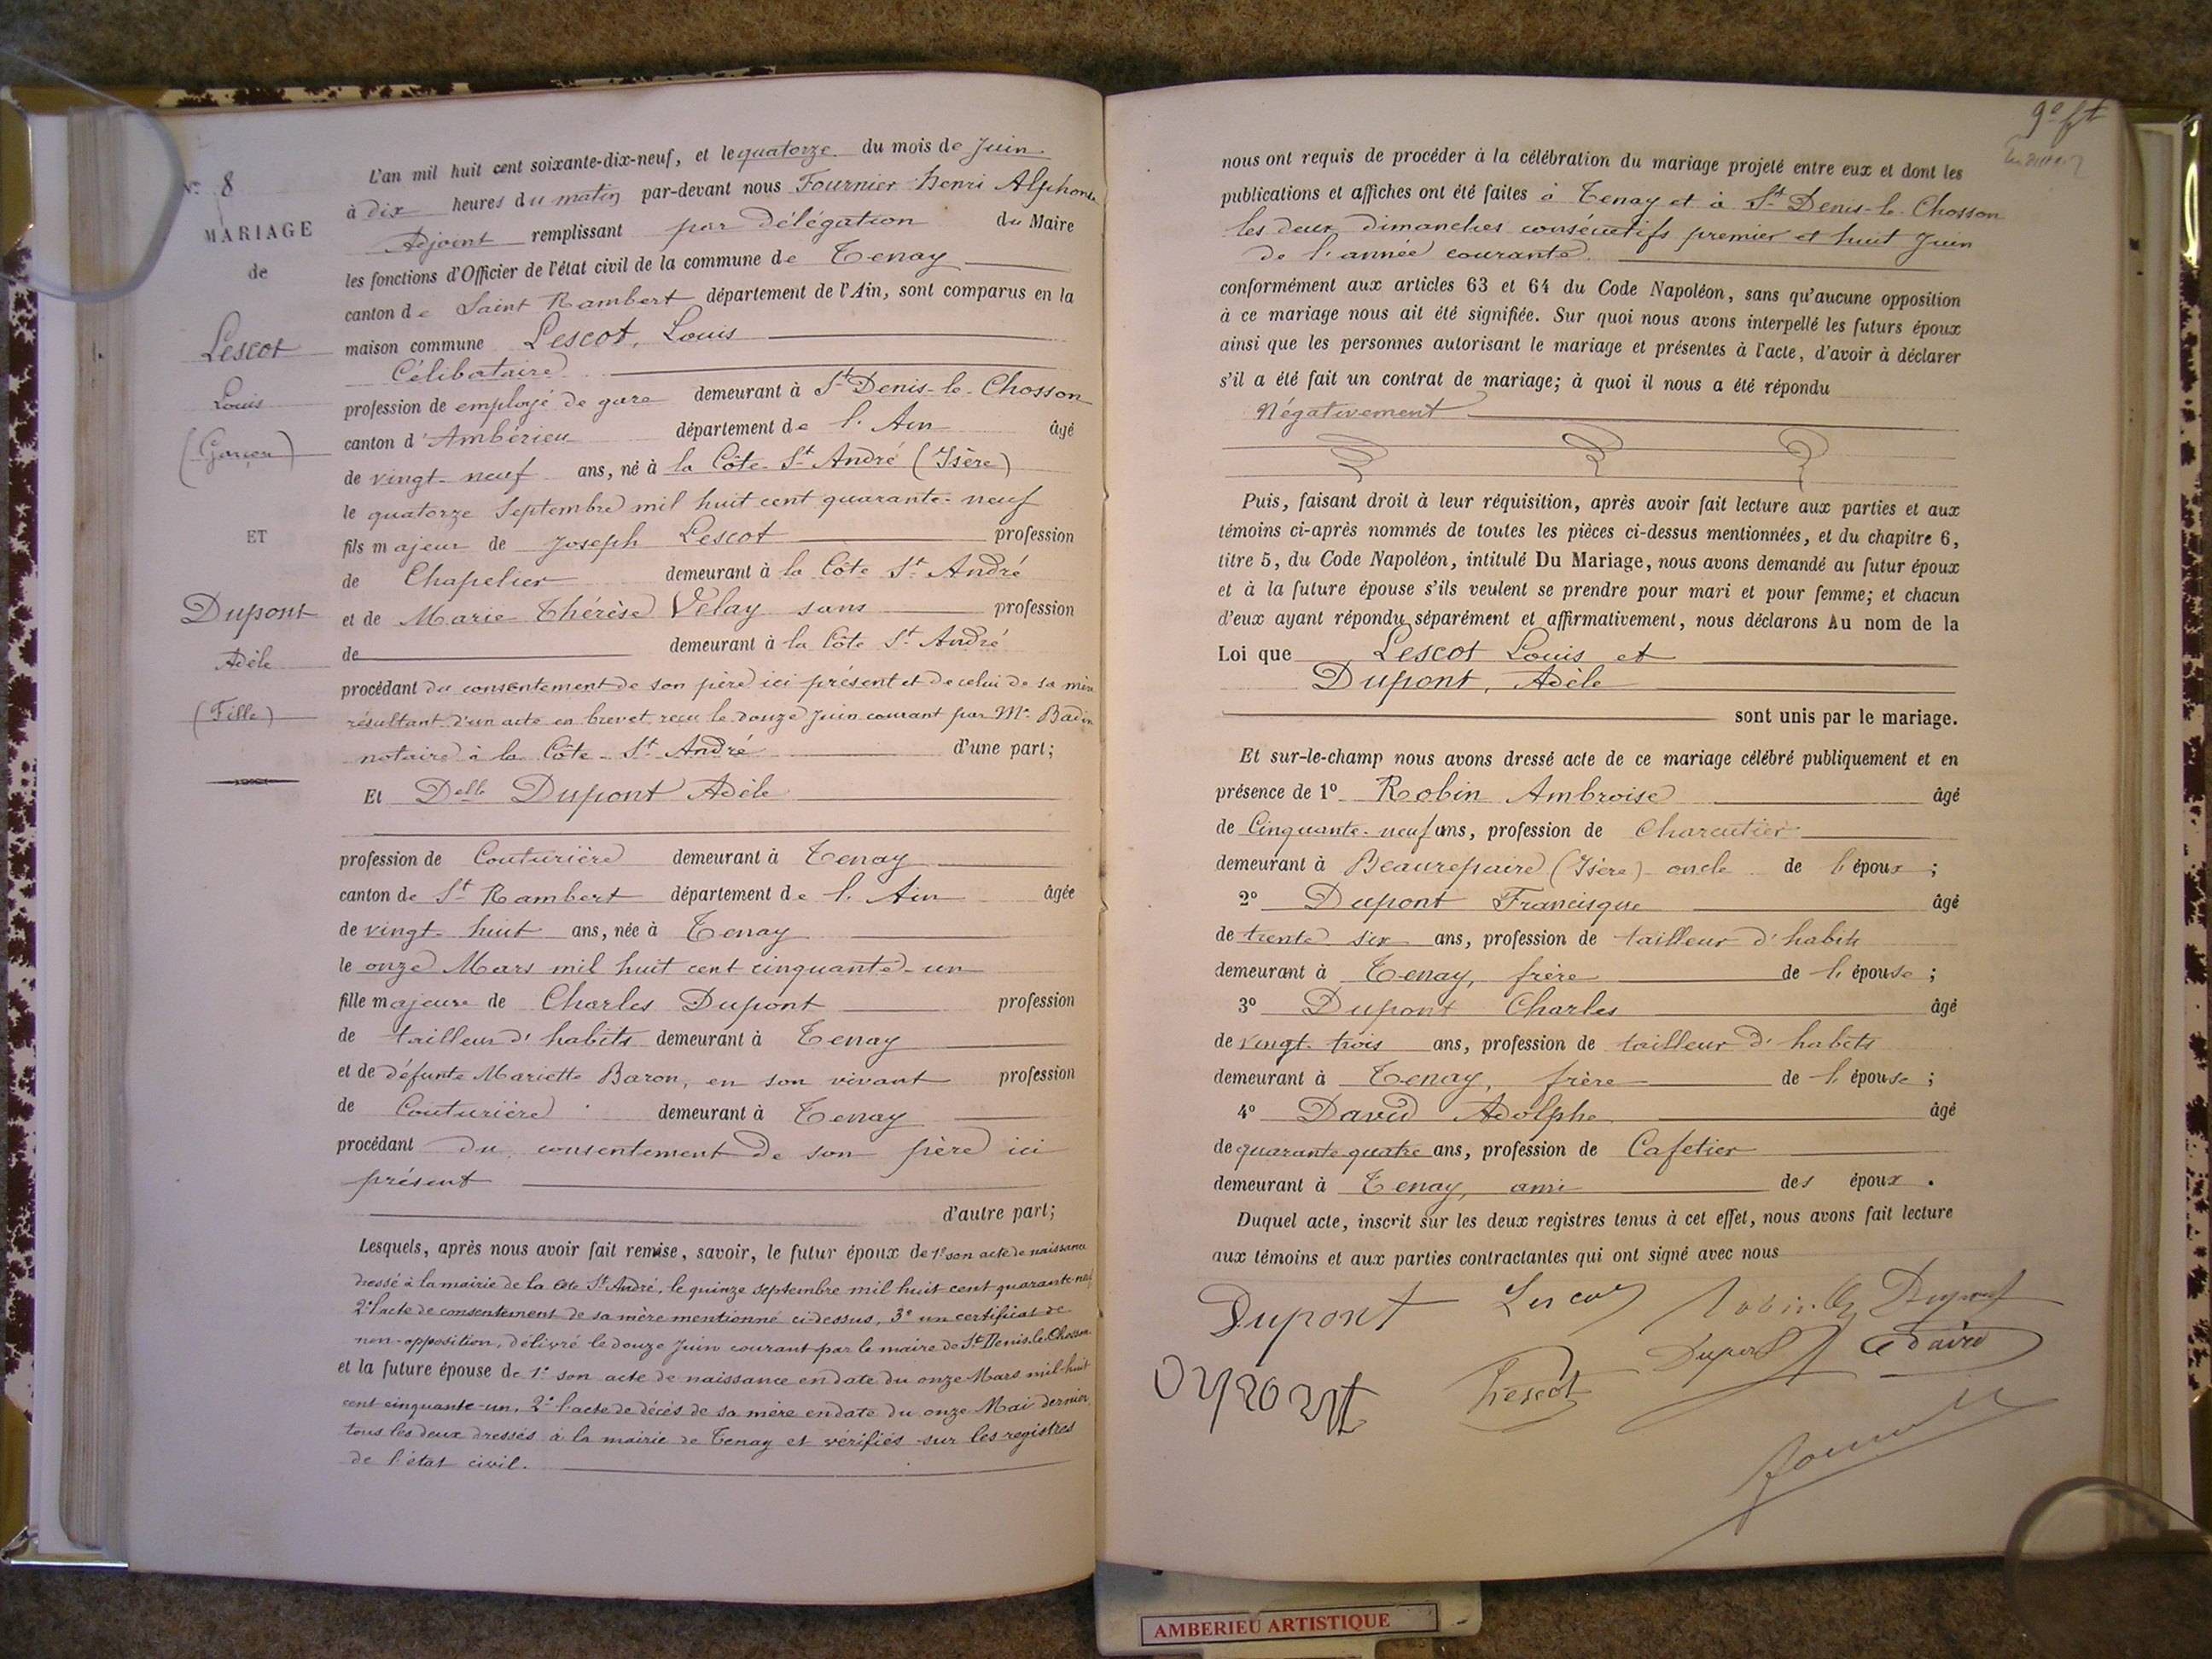 N° 8
MARIAGE
de
Lescot
Louis
(Garçon)
ET
Dupont
Adèle
(Fille)
L'an mil huit cent soixante-dix-neuf, et le quatorze du mois de Juin
à dix heures du matin par-devant nous Fournier Henri Alphonse
Adjoint remplissant par Délégation du Maire
les fonctions d'Officier de l'état civil de la commune de Tenay
canton de Saint Rambert département de l'Ain, sont comparus en la
maison commune Lescot, Louis
Célibataire
profession de employé de gare demeurant à St Denis-le-Chosson
canton d'Ambérieu département de l'Ain âgé
de vingt-neuf ans, né à la Côte-St André (Isère)
le quatorze Septembre mil huit cent quarante-neuf
fils majeur de Joseph Lescot profession
de Chapelier demeurant à la Côte St André
et de Marie Thérèse Velay sans profession
de demeurant à la Côte St André
procédant du consentement de son père ici présent et de celui de sa mère
résultant d'un acte en brevet reçu le douze Juin courant par Me Badin
notaire à la Côte-St André d'une part;
Et Delle Dupont Adèle
profession de Couturière demeurant à Tenay
canton de St Rambert département de l'Ain âgée
de vingt-huit ans, née à Tenay
le onze Mars mil huit cent cinquante-un
fille majeure de Charles Dupont profession
de tailleur d'habits demeurant à Tenay
et de défunte Mariette Baron, en son vivant profession
de Couturière demeurant à Tenay
procédant du consentement de son père ici
présent
d'autre part;
Lesquels, après nous avoir fait remise, savoir, le futur époux de 1° son acte de naissance
dressé à la mairie de la Côte St André, le quinze septembre mil huit cent quarante-neuf
2° l'acte de consentement de sa mère mentionné ci-dessus, 3° un certificat de
non-opposition, délivré le douze Juin courant par le maire de St Denis-le-Chosson
et la future épouse de 1° son acte de naissance en date du onze Mars mil-huit
cent-cinquante-un, 2° l'acte de décès de sa mère en date du onze Mai dernier,
tous les deux dressés à la mairie de Tenay et vérifiés sur les registres
de l'état civil.
9e ft
nous ont requis de procéder à la célébration du mariage projeté entre eux et dont les
publications et affiches ont été faites à Tenay et à St Denis-le-Chosson
les deux dimanches consécutifs premier et huit Juin
de l'année courante
conformément aux articles 63 et 64 du Code Napoléon, sans qu'aucune opposition
à ce mariage nous ait été signifiée. Sur quoi nous avons interpellé les futurs époux
ainsi que les personnes autorisant le mariage et présentes à l'acte, d'avoir à déclarer
s'il a été fait un contrat de mariage; à quoi il nous a été répondu
Négativement
Puis, faisant droit à leur réquisition, après avoir fait lecture aux parties et aux
témoins ci-après nommés de toutes les pièces ci-dessus mentionnées, et du chapitre 6,
titre 5, du Code Napoléon, intitulé Du Mariage, nous avons demandé au futur époux
et à la future épouse s'ils veulent se prendre pour mari et pour femme; et chacun
d'eux ayant répondu séparément et affirmativement, nous déclarons Au nom de la
Loi que Lescot Louis et
Dupont, Adèle
sont unis par le mariage.
Et sur-le-champ nous avons dressé acte de ce mariage célébré publiquement et en
présence de 1° Robin Ambroise âgé
de Cinquante-neuf ans, profession de Charcutier
demeurant à Beaurepaire (Isère) oncle de l'époux;
2° Dupont Francisque âgé
de trente six ans, profession de tailleur d'habits
demeurant à Tenay, frère de l'épouse;
3° Dupont Charles âgé
de vingt-trois ans, profession de tailleur d'habits
demeurant à Tenay, frère de l'épouse;
4° David Adolphe âgé
de quarante quatre ans, profession de Cafetier
demeurant à Tenay, ami des époux.
Duquel acte, inscrit sur les deux registres tenus à cet effet, nous avons fait lecture
aux témoins et aux parties contractantes qui ont signé avec nous
Dupont Lescot Dupont
Dupont A David
Lescot
AMBERIEU ARTISTIQUE